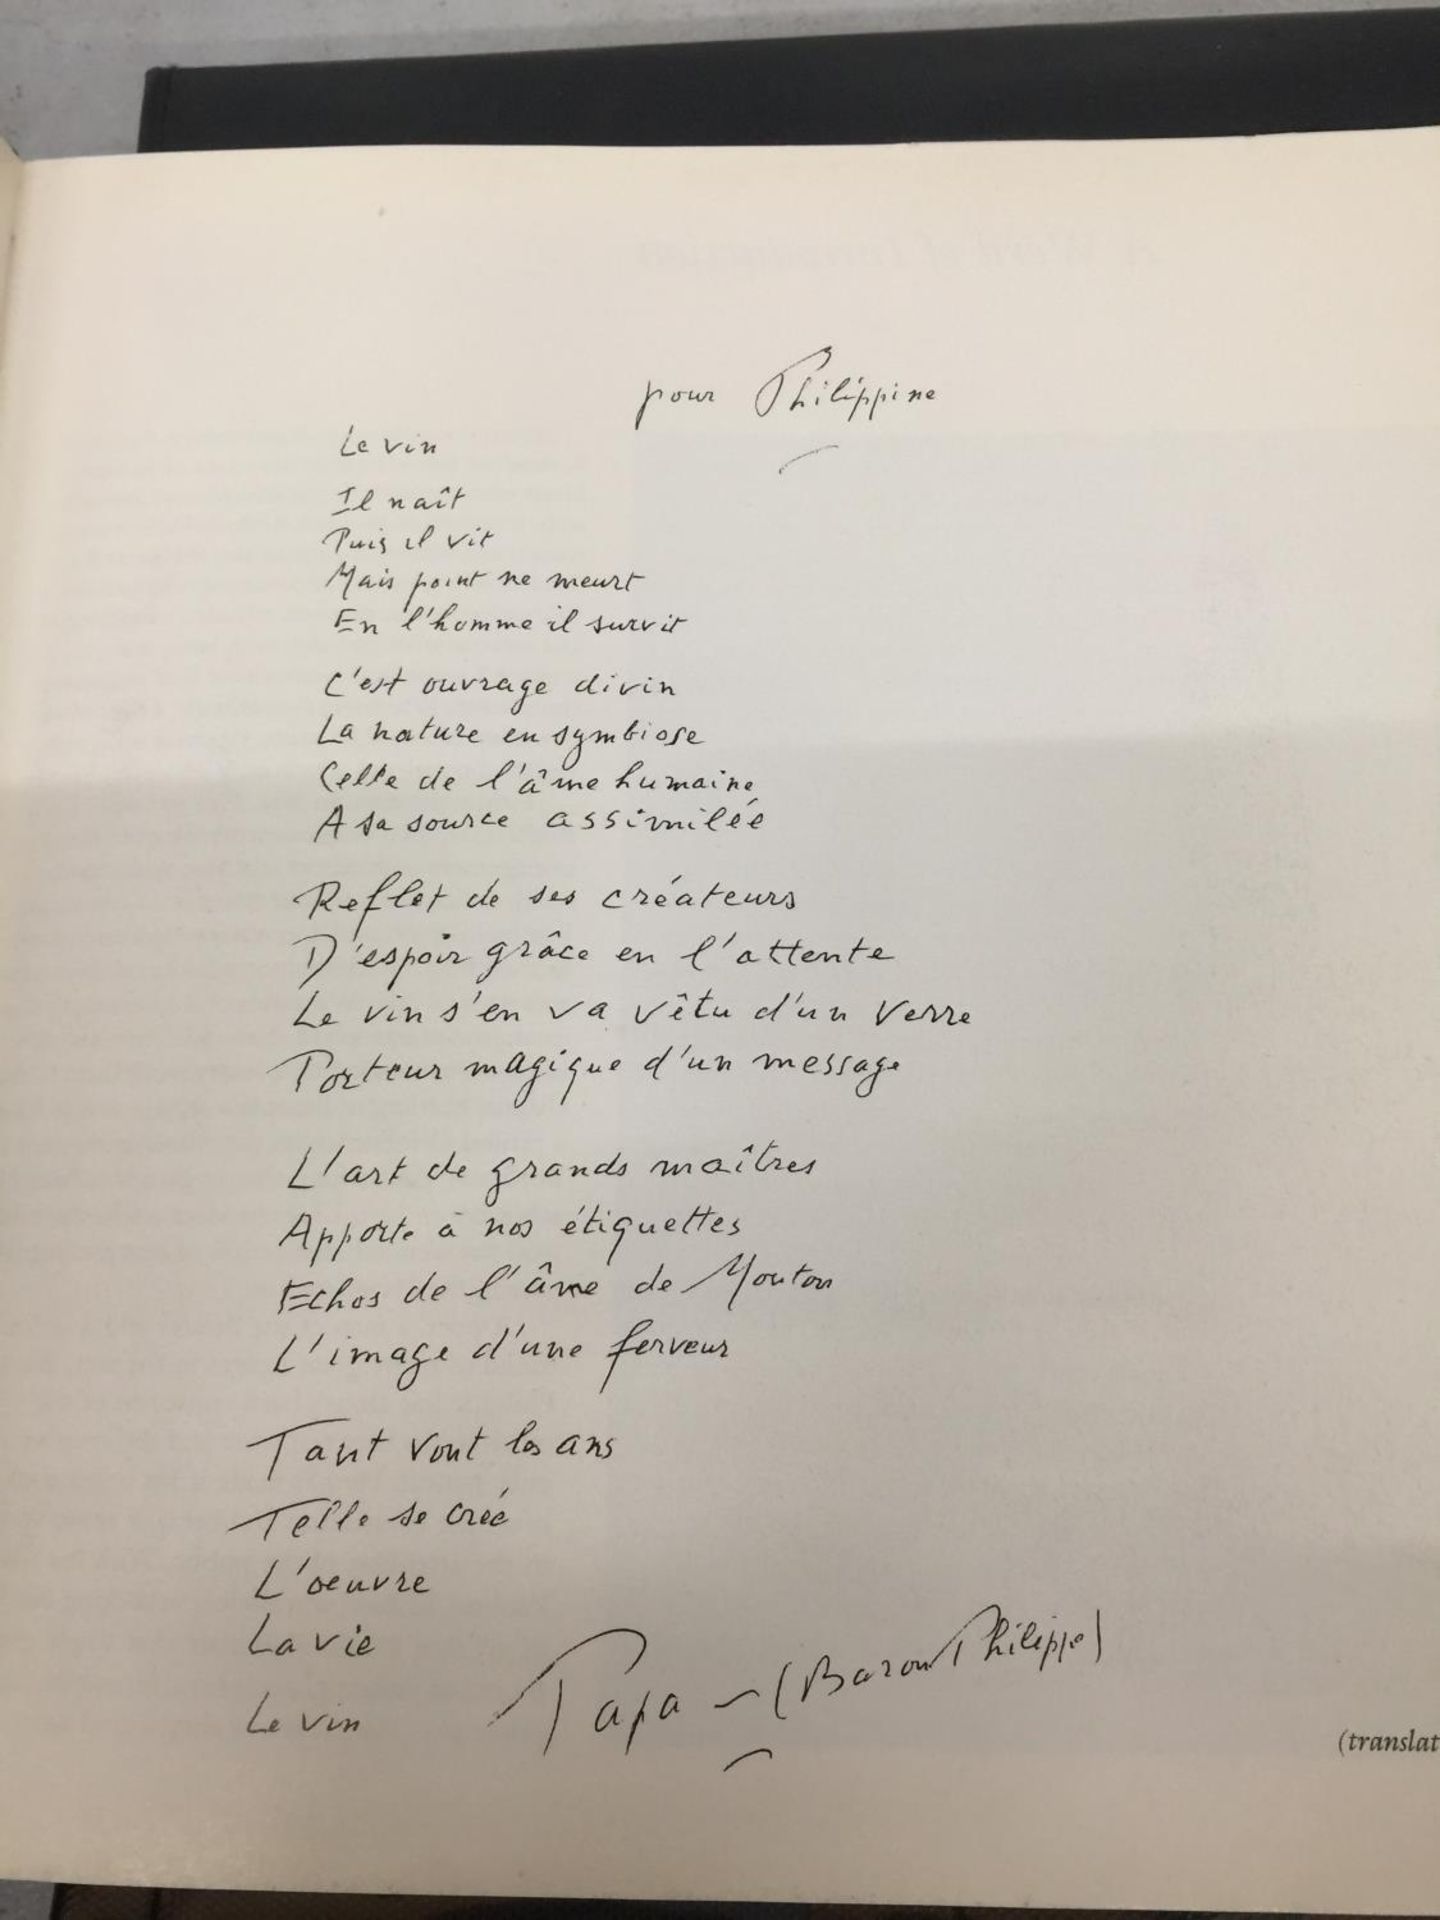 pour Philippine
Le vin
Il naît
Puis il vit
Mais point ne meurt
En l'homme il survit
C'est ouvrage divin
La nature en symbiose
Celle de l'âme humaine
A sa source assimilée
Reflet de ses créateurs
D'espoir grâce en l'attente
Le vin s'en va vêtu d'un verre
Porteur magique d'un message
L'art de grands maîtres
Apporte à nos étiquettes
Echos de l'âme de Mouton
L'image d'une ferveur
Tant vont les ans
Telle se crée
L'oeuvre
La vie
Le vin
Papa - (Baron Philippe)
(translat